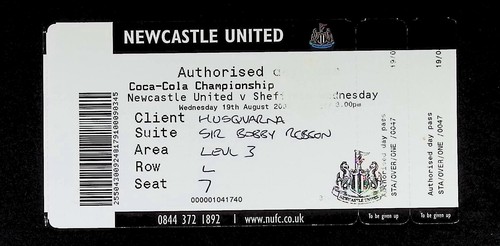 NEWCASTLE UNITED
Authorised
Coca-Cola Championship
Newcastle United v Shef nesday
Wednesday 19th August 20 .00pm
Client HUSQVARNA
Suite SIR BOBBY ROBSON
Area LEVL 3
Row L
Seat 7
000001041740
0844 372 1892 | www.nufc.co.uk
25504300924017910009 0345
Authorised day pass
STA/OVER/ONE /0047
19/0
To be given up
Authorised day pass
STA/OVER/ONE /0047
19/0
To be given up